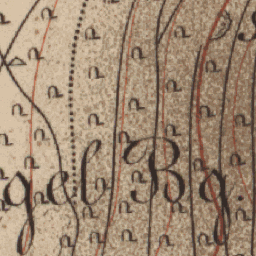 gel Bg.